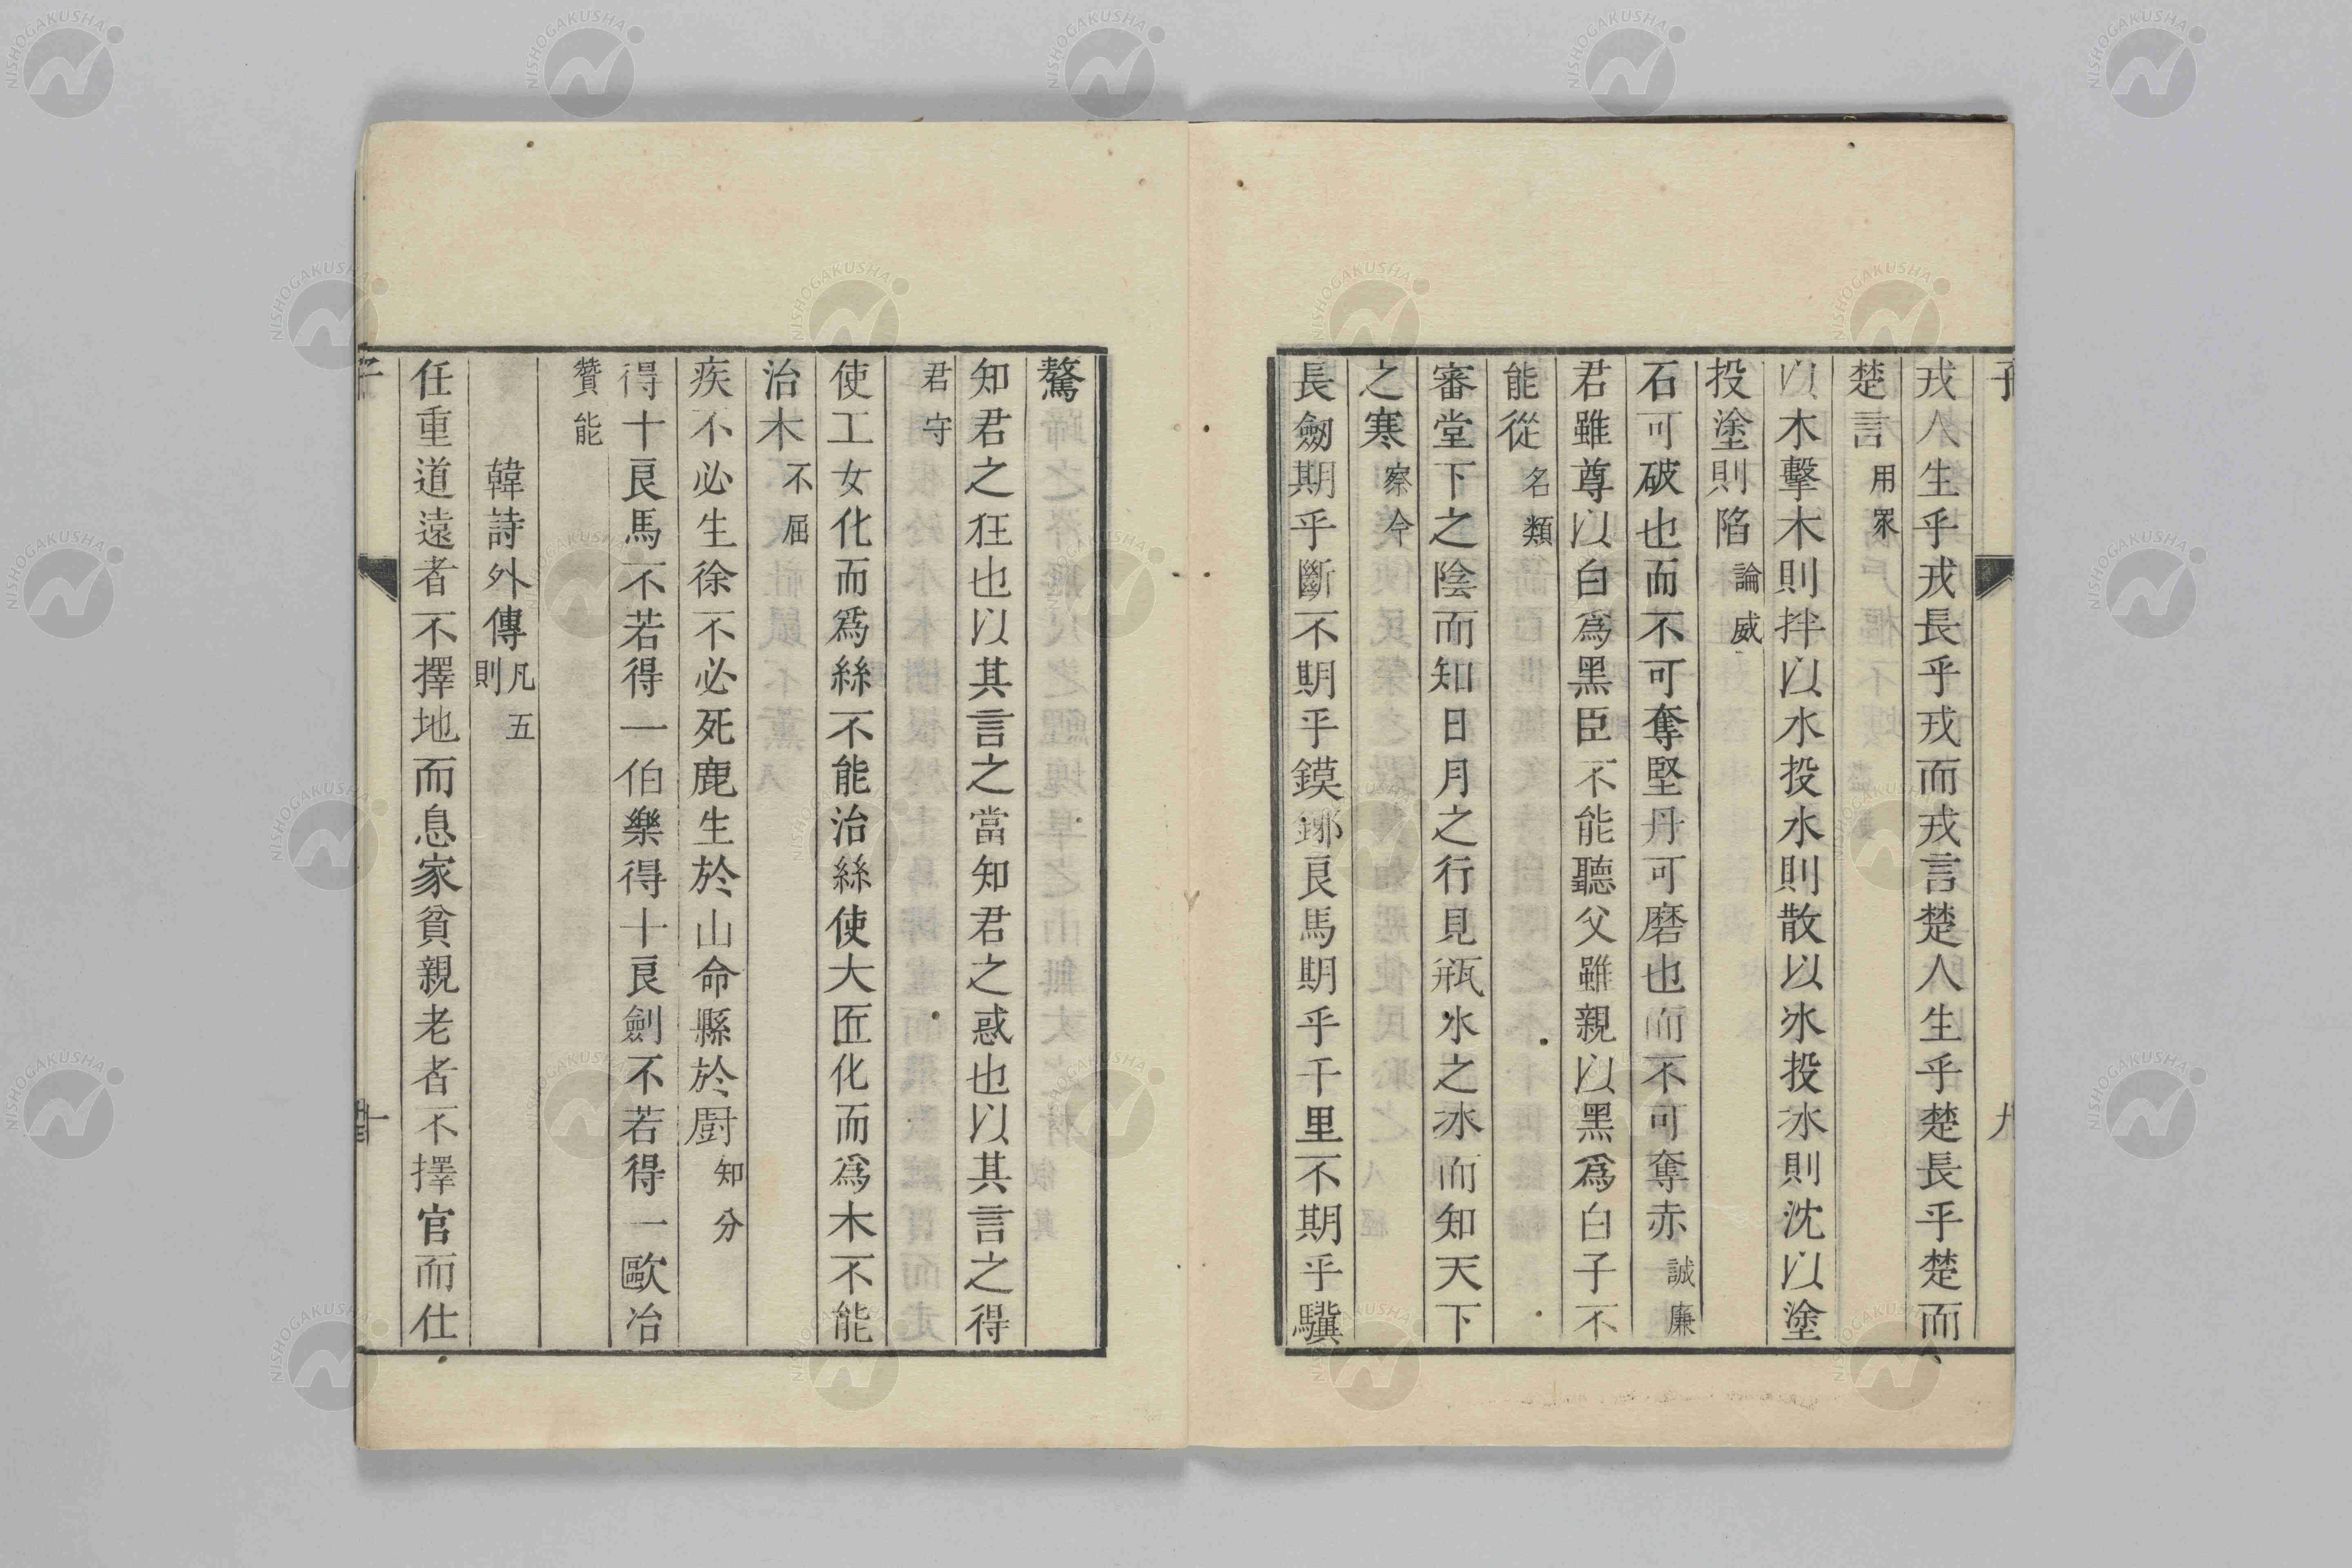 戎人生乎戎長乎戎而戎言楚人生乎楚長乎楚而
楚言用衆
以木擊木則拌以水投水則散以氷投氷則沈以塗
投塗則陷論威
石可破也而不可奪堅丹可磨也而不可奪赤誠廉
君雖尊以白爲黑臣不能聽父雖親以黑爲白子不
能從名類
審堂下之陰而知日月之行見瓶水之冰而知天下
之寒察今
長劒期乎斷不期乎鏌鋣良馬期乎千里不期乎驥
驁
知君之狂也以其言之當知君之惑也以其言之得
君守
使工女化而爲絲不能治絲使大匠化而爲木不能
治木不屈
疾不必生徐不必死鹿生於山命縣於廚知分
得十良馬不若得一伯樂得十良劍不若得一歐冶
贊能
韓詩外傳凡五則
任重道遠者不擇地而息家貧親老者不擇官而仕
NISHOGAKUSHA